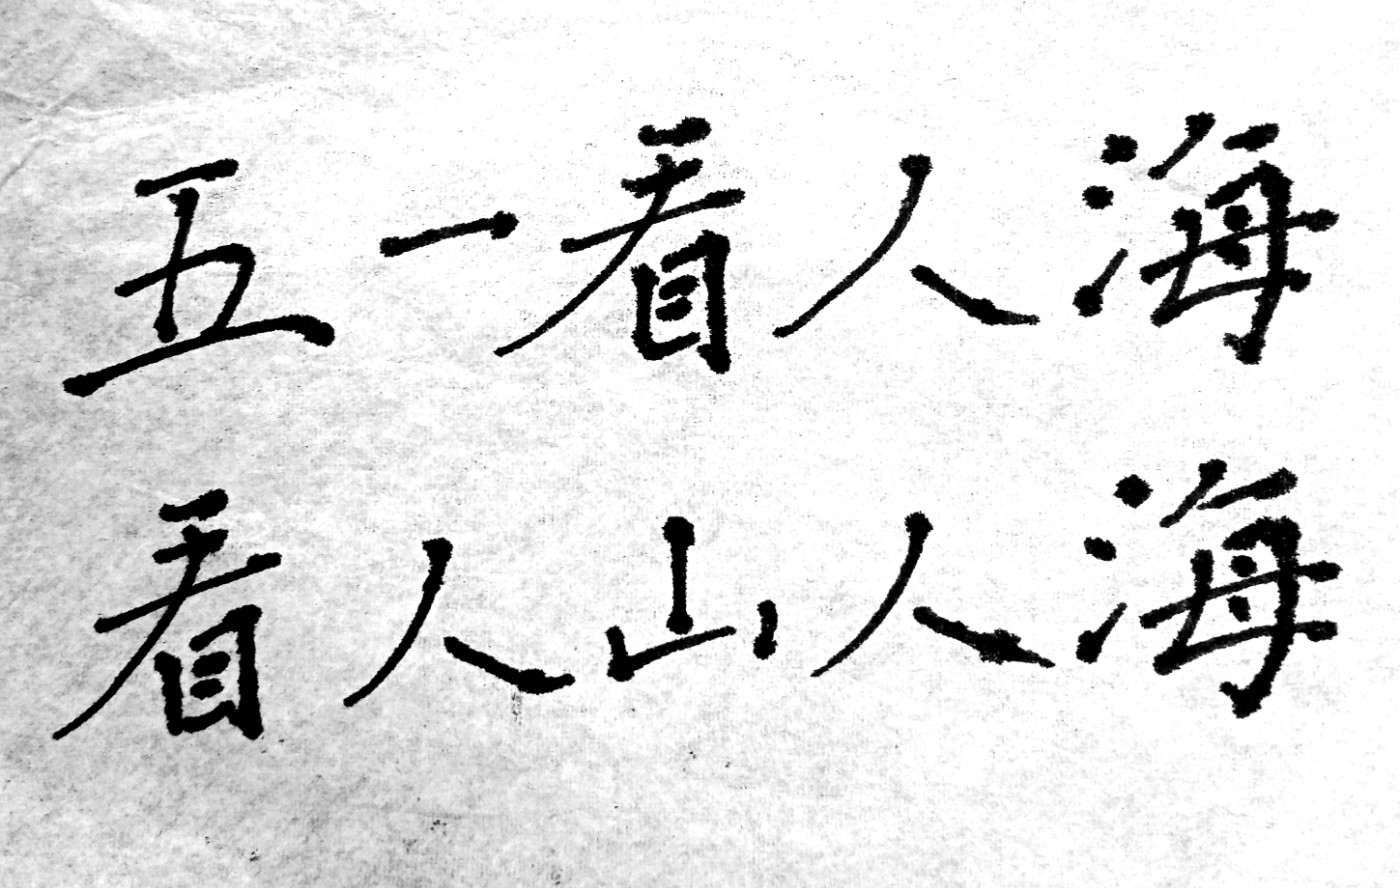 五一看人海
看人山人海